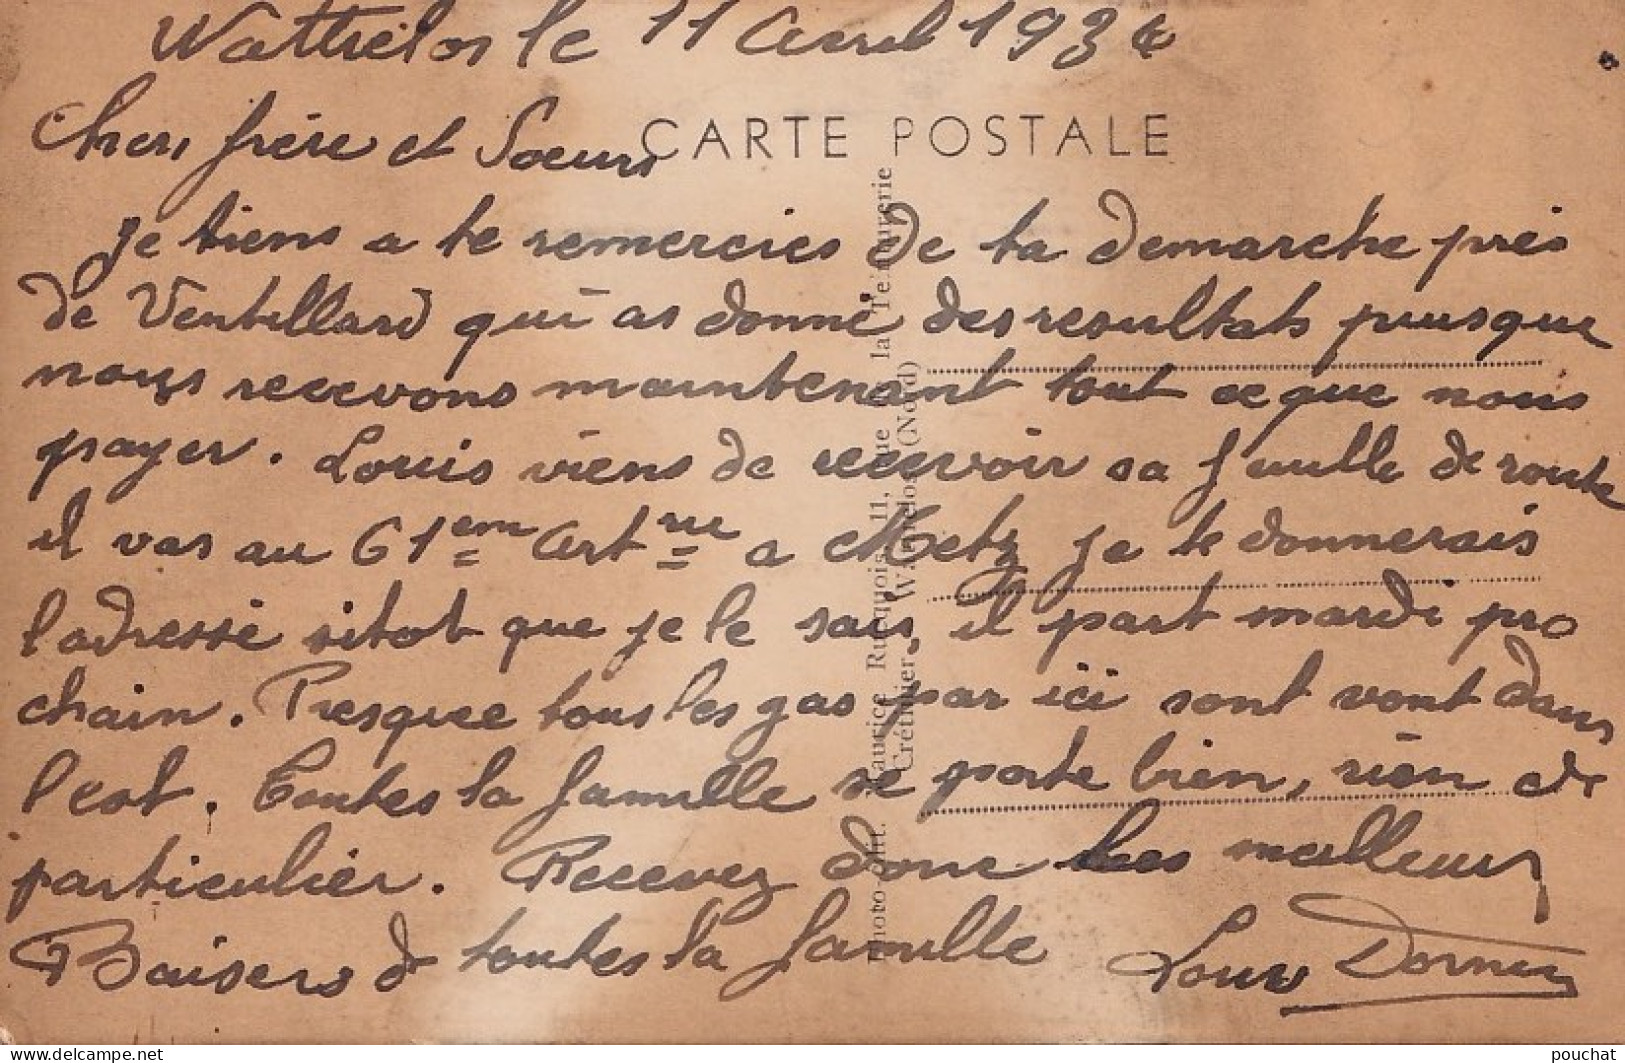 Wattrelos le 11 Avril 1934
CARTE POSTALE
Chers frère et Sœurs
Je tiens a te remercies de ta demarche près
de Ventillard qui as donné des resultats puisque
nous recevons maintenant tout ce que nous
payer. Louis viens de recevoir sa feuille de route
il vas au 61em Artrie a Metz je te donnerais
l'adresse sitot que je le sais, il part mardi pro
chain. Presque tous les gas par ici sont vont dans
l'est. Toutes la famille se porte bien, rien de
particulier. Recevez donc les meilleurs
Baisers de toutes la famille Louis
Photo-édit. Maurice Rucquois, 11, rue de la Teinturerie
Crétinier Wattrelos (Nord)
pouchat